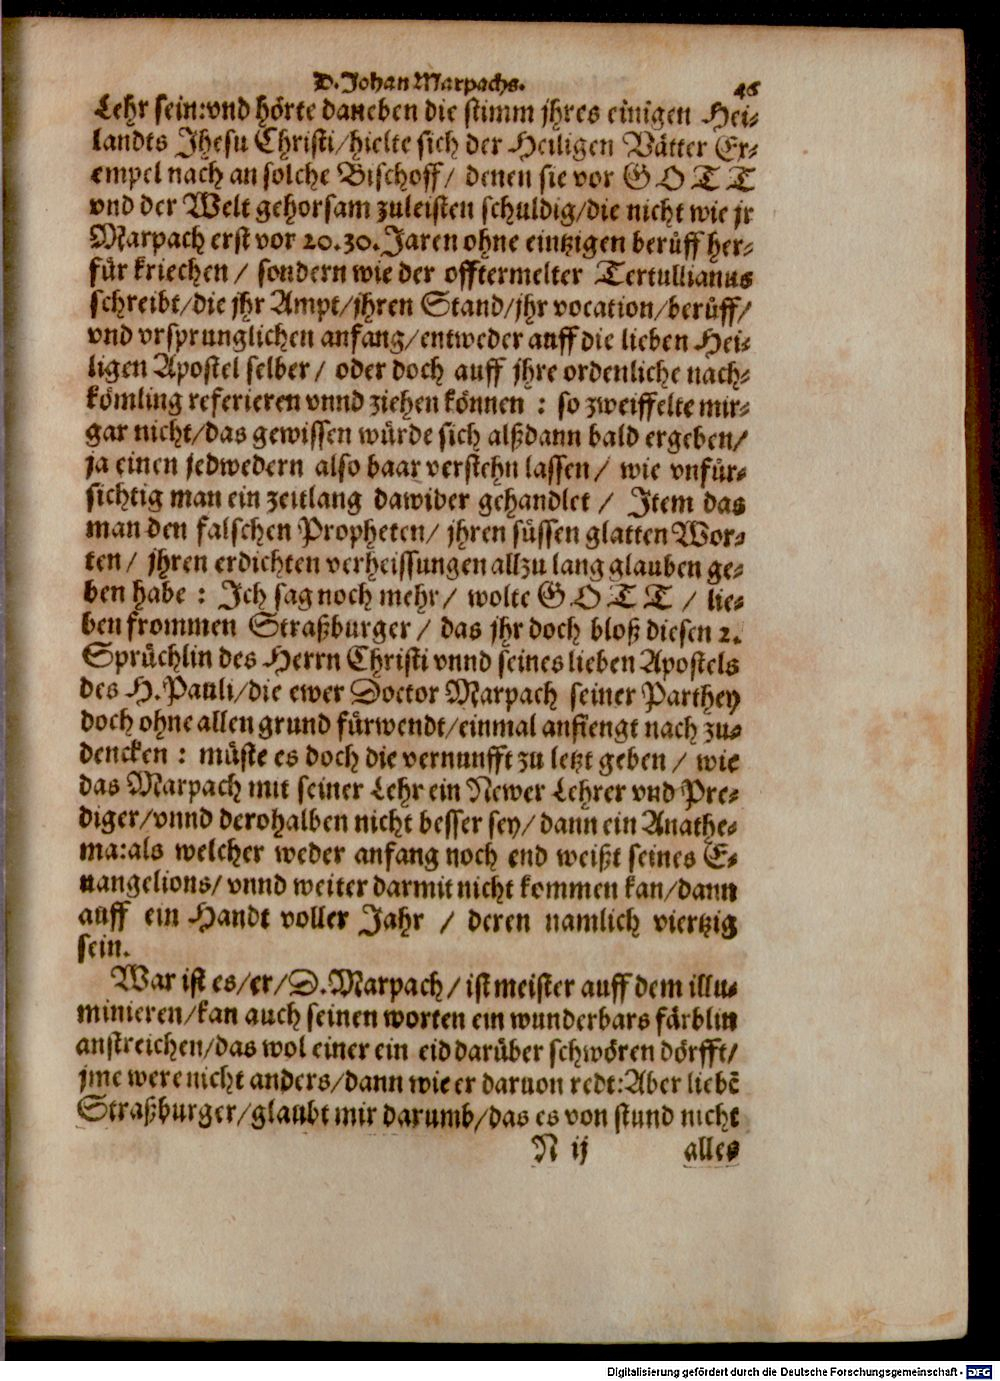 D. Johan Marpachs. 46
Lehr sein: vnd hörte daneben die stimm jhres einigen Hei-
landts Jhesu Christi/ hielte sich der Heiligen Vätter Ex-
empel nach an solche Bischoff/ denen sie vor GOTT
vnd der Welt gehorsam zuleisten schuldig/ die nicht wie jr
Marpach erst vor 20. 30. Jaren ohne eintzigen berůff her-
für kriechen/ sondern wie der offtermelter Tertullianus
schreibt/ die jhr Ampt/ jhren Stand/ jhr vocation/ berůff/
vnd vrsprunglichen anfang/ entweder auff die lieben Hei-
ligen Apostel selber/ oder doch auff jhre ordenliche nach-
kömling referieren vnnd ziehen können : so zweiffelte mir-
gar nicht/ das gewissen würde sich alßdann bald ergeben/
ja einen jedwedern also baar verstehn lassen/ wie vnfür-
sichtig man ein zeitlang dawider gehandlet / Item das
man den falschen Propheten/ jhren süssen glatten Wor-
ten/ jhren erdichten verheissungen allzu lang glauben ge-
ben habe : Ich sag noch mehr/ wolte GOTT / lie-
ben frommen Straßburger/ das jhr doch bloß diesen 2.
Sprüchlin des Herrn Christi vnnd seines lieben Apostels
des H. Pauli/ die ewer Doctor Marpach seiner Parthey
doch ohne allen grund fürwendt/ einmal anfiengt nach zu-
dencken : müste es doch die vernunfft zu letzt geben/ wie
das Marpach mit seiner Lehr ein Newer Lehrer vnd Pre-
diger/ vnnd derohalben nicht besser sey/ dann ein Anathe-
ma: als welcher weder anfang noch end weißt seines E-
uangelions/ vnnd weiter darmit nicht kommen kan/ dann
auff ein Handt voller Jahr / deren namlich viertzig
sein.
War ist es/ er/ D. Marpach/ ist meister auff dem illu-
minieren/ kan auch seinen worten ein wunderbars färblin
anstreichen/ das wol einer ein eid darüber schwören dörfft/
jme were nicht anders/ dann wie er daruon redt: Aber liebẽ
Straßburger/ glaubt mir darumb/ das es von stund nicht
N ij alles
Digitalisierung gefördert durch die Deutsche Forschungsgemeinschaft - DFG